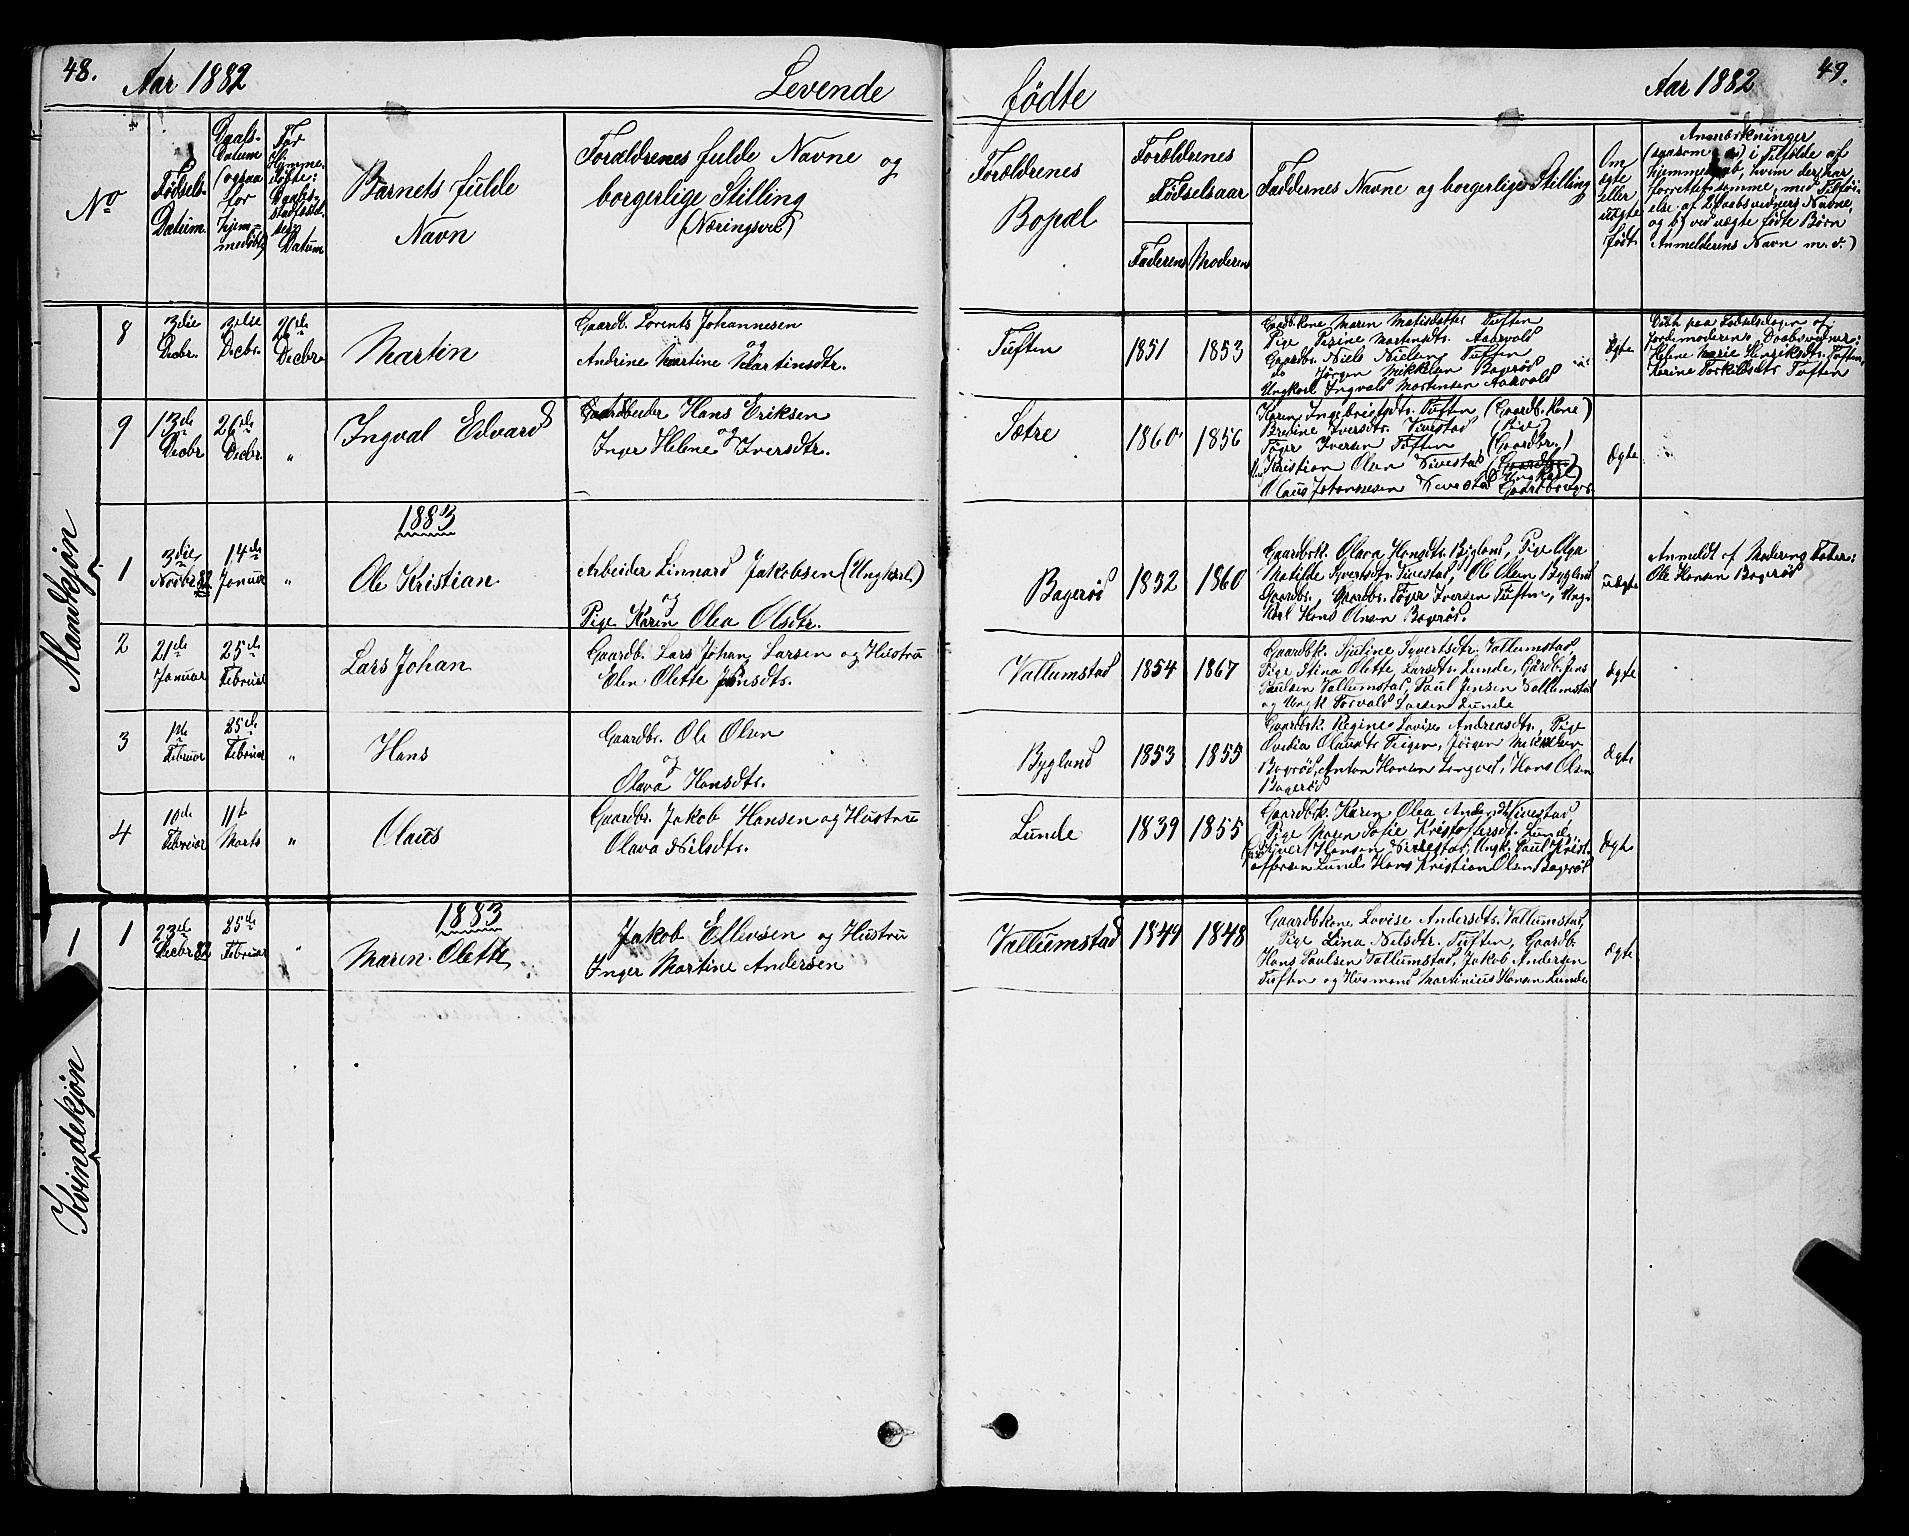 48. Aar 1882 Levende
fødte Aar 1882 49.
No
Fødsels-
Datum.
Daabs-
Datum
(ogsaa
for
hjem-
medøbt)
For
Hjemme-
døbte:
Daabs-
stadfæstel-
sens
Datum
Barnets fulde
Navn
Forældrenes fulde Navne og
borgerlige Stilling
(Næringsvei)
Forældrenes
Bopæl
Forældrenes
Fødselsaar
Faderens Moderens
Faddernes Navne og borgerlige Stilling
Om
ægte
eller
uægte
født.
Anmærkninger
(saasom a) i Tilfælde af
hjemmedaab, hvem der har
forrettet samme, med Tilføi-
else af 2 Daabsvidners Navne,
og b) ved uægte fødte Børn
Anmelderens Navn m. v.)
Mandkjøn
8
3die
Decbr.
3die
Decbr.
26de
Decbr.
Martin
Gaardb. Lorents Johannesen
og
Andrine Martine Martinsdtr.
Tuften
1851
1853
Gaardbkone Maren Matisdatter Tuften
Pige Perine Martensdtr. Aarvold
Gaardbr. Niels Nielsen Tuften
do Jørgen Mikkelsen Bagerød
Ungkarl Ingvald Mortensen Aarvold
Ægte
Døbt paa Fødselsdagen af
Jordemoderen. Daabsvidner:
Helene Marie Henriksdtr. Tuften,
Karine Torkildsdtr Tuften
9
13de
Decbr
26de
Decbr.
"
Ingval Edvard
Gaardbeider Hans Eriksen
og
Inger Helene Iversdtr.
Sætre
1860
1856
Karen Ingebrigtsdtr. Tuften (Gaardb. Kone)
Bredine Iversdtr. Vivestad (Pige)
Tøger Iversen Tuften (Gaardbr.)
Kristian Olsen Vivestad (Gaardbr.)
(Ungkarl)
Olaus Johannesen Vivestad Gaardbruger
Ægte
1883
1
3die
Novbr 82
14de
Januar
"
Ole Kristian
Arbeider Linnard Jakobsen (Ungkarl)
og
Pige Karen Olea Olsdtr.
Bagerød
1852
1860
Gaardbsk. Olava Hansdtr. Bygland, Pige Olga
Matilde Syvertsdtr. Vivestad, Ole Olsen Bygland
Gaardbr., Gaardbr. Tøger Iversen Tuften, Ung-
karl Hans Olsen Bagerød.
uægte
Anmeldt af Moderens Fader:
Ole Hansen Bagerød
2
21de
Januar
25de
Februar
Lars Johan
Gaardb. Lars Johan Larsen og Hustru
Elen Olette Jensdtr.
Vallumstad
1854
1867
Gaardbk. Sjetine Syvertsdtr. Vallumstad,
Pige Stina Olette Larsdtr. Lunde, Gaardb. Jens
Paulsen Vallumstad, Paul Jensen Vallumstad
og Ungk Torvald Larsen Lunde
Ægte
3
1ste
Februar
25de
Februar
"
Hans
Gaardbr. Ole Olsen
og
Olava Hansdtr.
Bygland
1853
1855
Gaardbsk. Regine Lovise Andreasdtr, Pige
Ovedia Olausdtr Teigen, Jørgen Mikkelsen
Bagerød, Anton Hansen Langved, Hans Olsen
Bagerød
Ægte
4
10de
Februar
11te
Marts
"
Olaus
Gaardbr. Jakob Hansen og Hustru
Olava Nilsdtr.
Lunde
1839
1855
Gaardbsk. Karen Olea Andersdtr Vivestad,
Pige Maren Sofie Kristoffersdt. Lunde,
Syvert Hansen Vivestad, Ungk. Paul Krist-
offersen Lunde Hans Kristian Olsen Bagerød
Ægte
Kvindekjøn
1883
1
1
23de
Decbr 82
25de
Februar
"
Maren Olette
Jakob Ellevsen og Hustru
Inger Martine Andersen
Vallumstad
1849
1848
Gaardbkone Lovise Andersdtr. Vallumstad,
Pige Lina Nilsdtr. Tuften, Gaardb.
Hans Paulsen Vallumstad, Jakob Andersen
Tuften og Husmand Martinius Hansen Lunde
Ægte